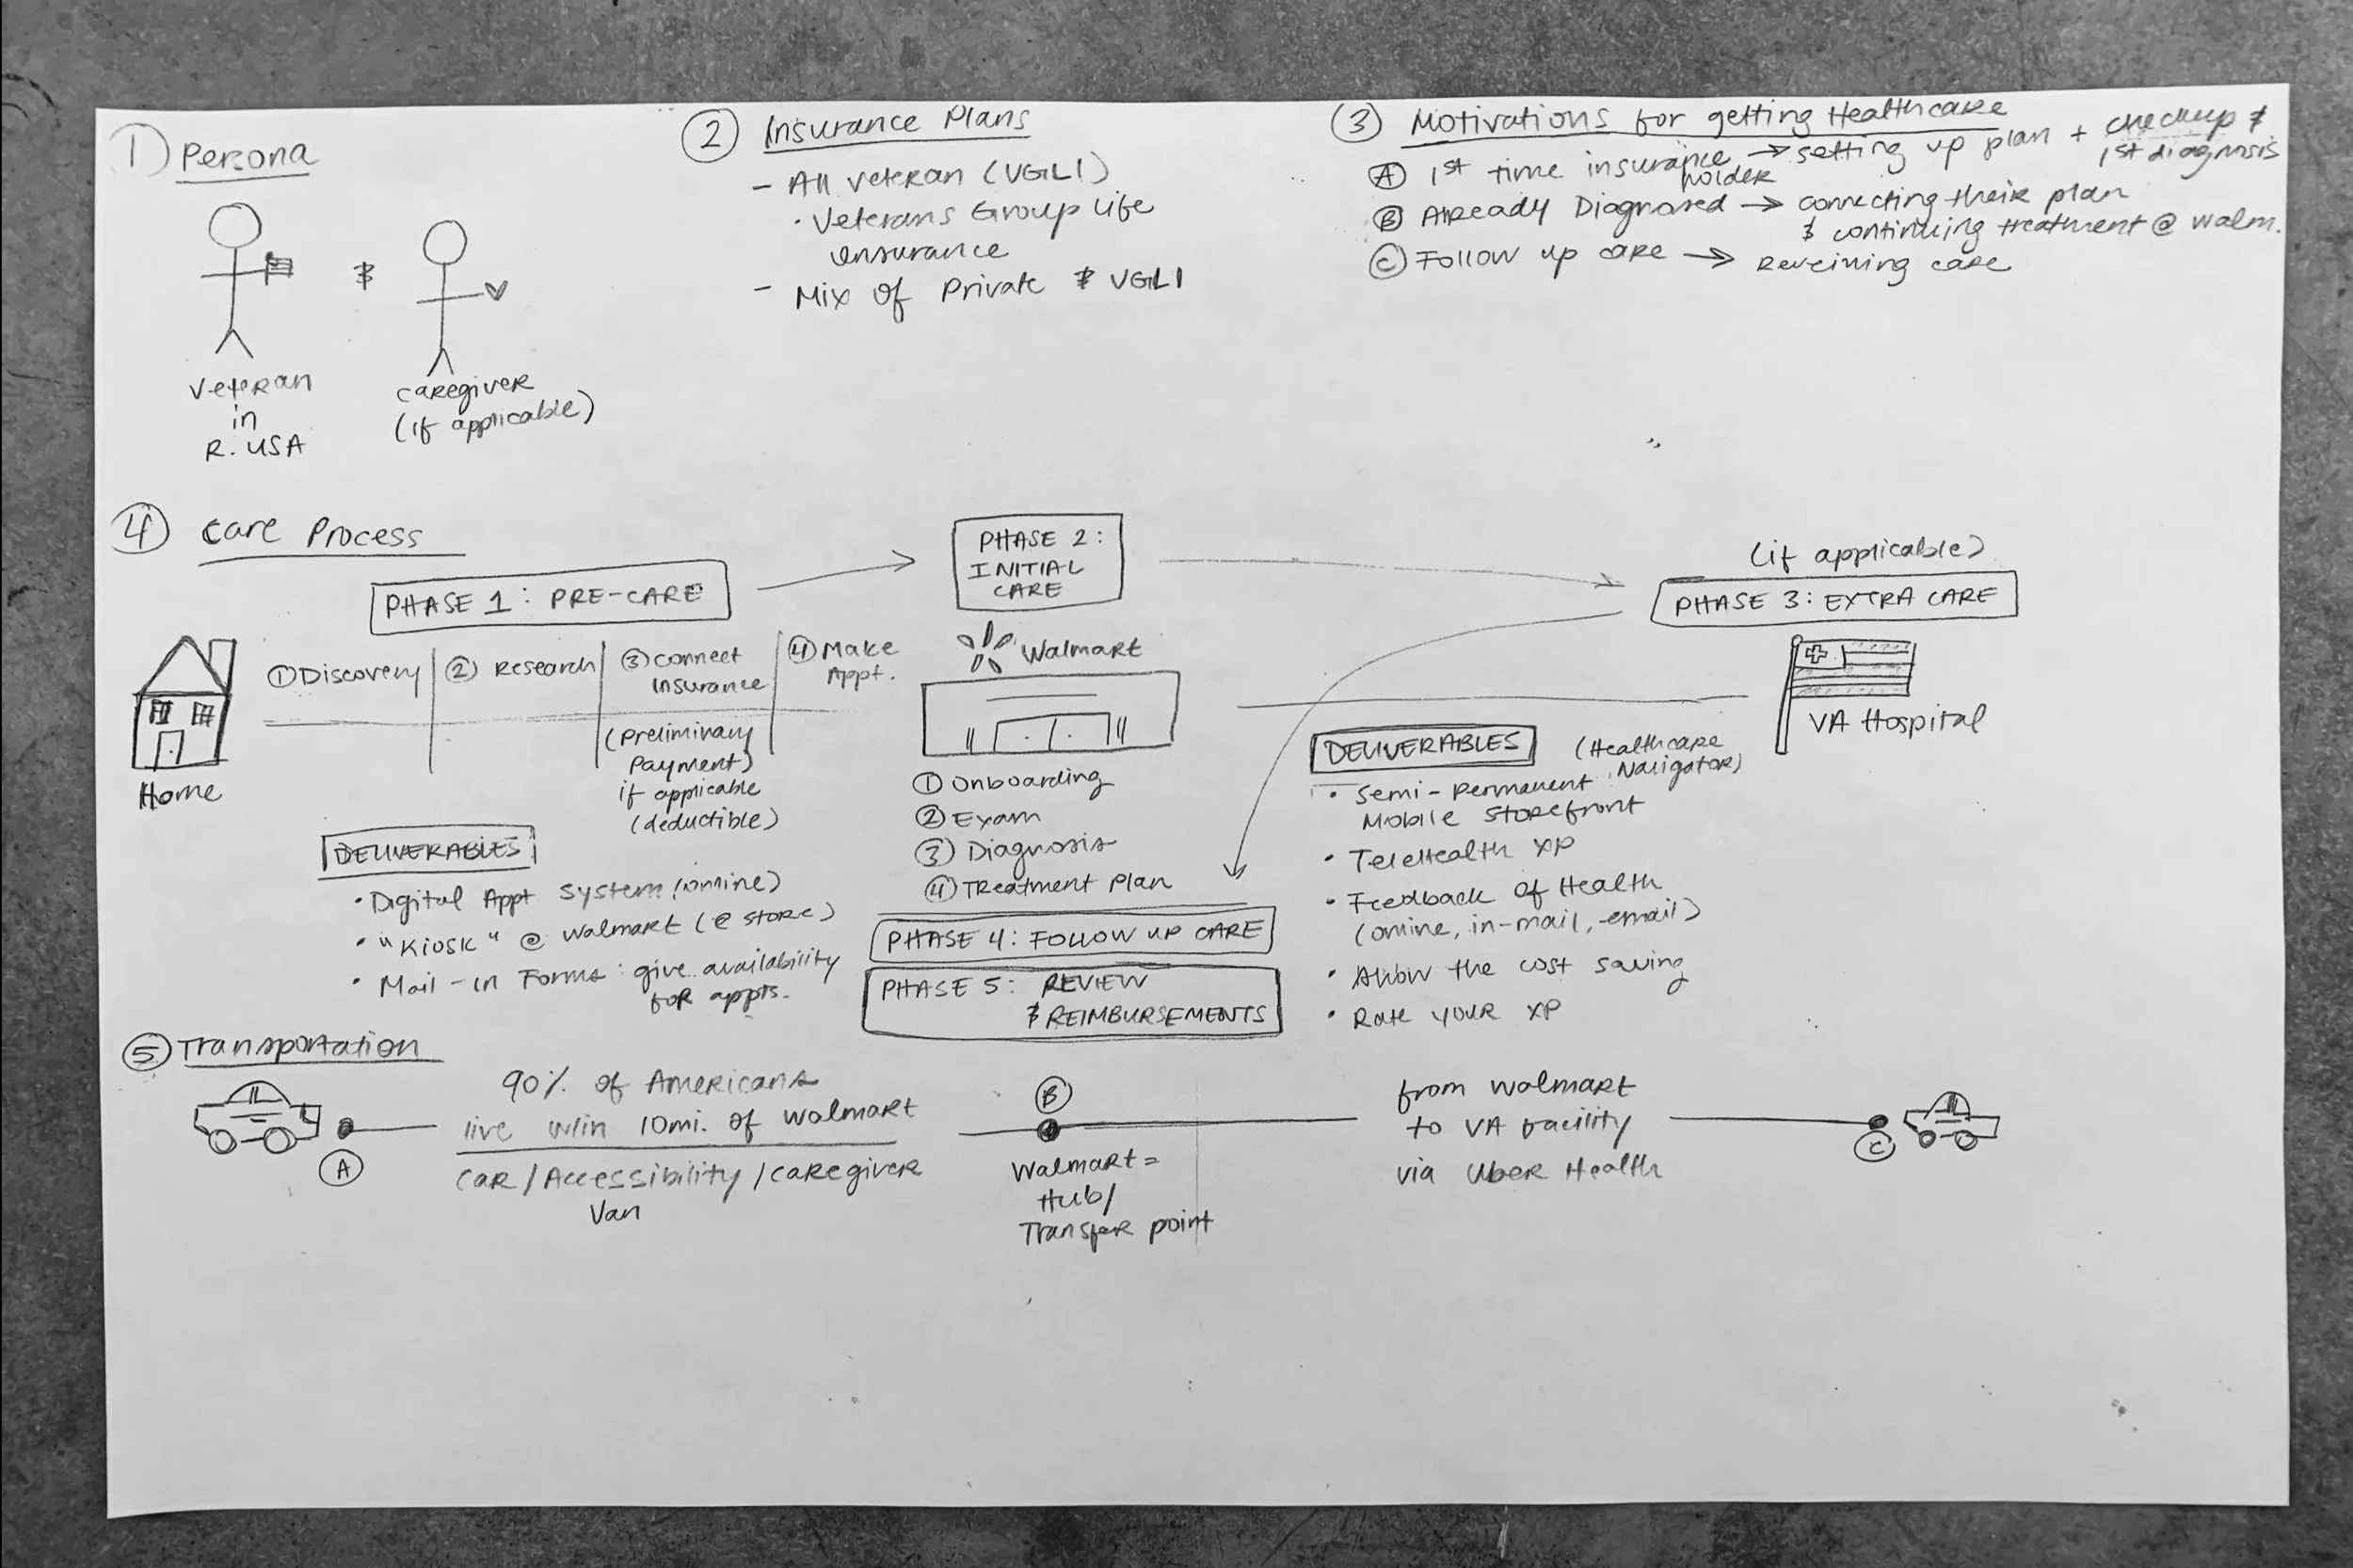 1) Persona
Veteran
in
R. USA
&
caregiver
(if applicable)
2 Insurance Plans
- All veteran (VGLI)
· Veterans Group Life
Insurance
- Mix of Private & VGLI
3 Motivations for getting Healthcare
A 1st time insurance holder → setting up plan + checkup &
1st diagnosis
B Already Diagnosed → connecting their plan
& continuing treatment @ walm.
C Follow up care → receiving care
4 Care Process
PHASE 1: PRE-CARE
Home
1 Discovery
2 Research
3 connect
insurance
(preliminary
payment)
if applicable
(deductible)
4 Make
Appt.
DELIVERABLES
• Digital Appt system (online)
• "Kiosk" @ walmart (@ store)
• Mail-in Forms: give availability
for appts.
PHASE 2:
INITIAL
CARE
Walmart
1 Onboarding
2 Exam
3 Diagnosis
4 Treatment Plan
PHASE 4: FOLLOW UP CARE
PHASE 5: REVIEW
& REIMBURSEMENTS
(if applicable)
PHASE 3: EXTRA CARE
VA Hospital
DELIVERABLES (Healthcare
Navigator)
• Semi-permanent
Mobile storefront
• Telehealth XP
• Feedback of Health
(online, in-mail, email)
• the cost saving
• Rate your XP
5 Transportation
A
90% of Americans
live w/in 10mi. of walmart
car/Accessibility/caregiver
Van
B
Walmart =
Hub/
Transfer point
from walmart
to VA facility
via Uber Health
C